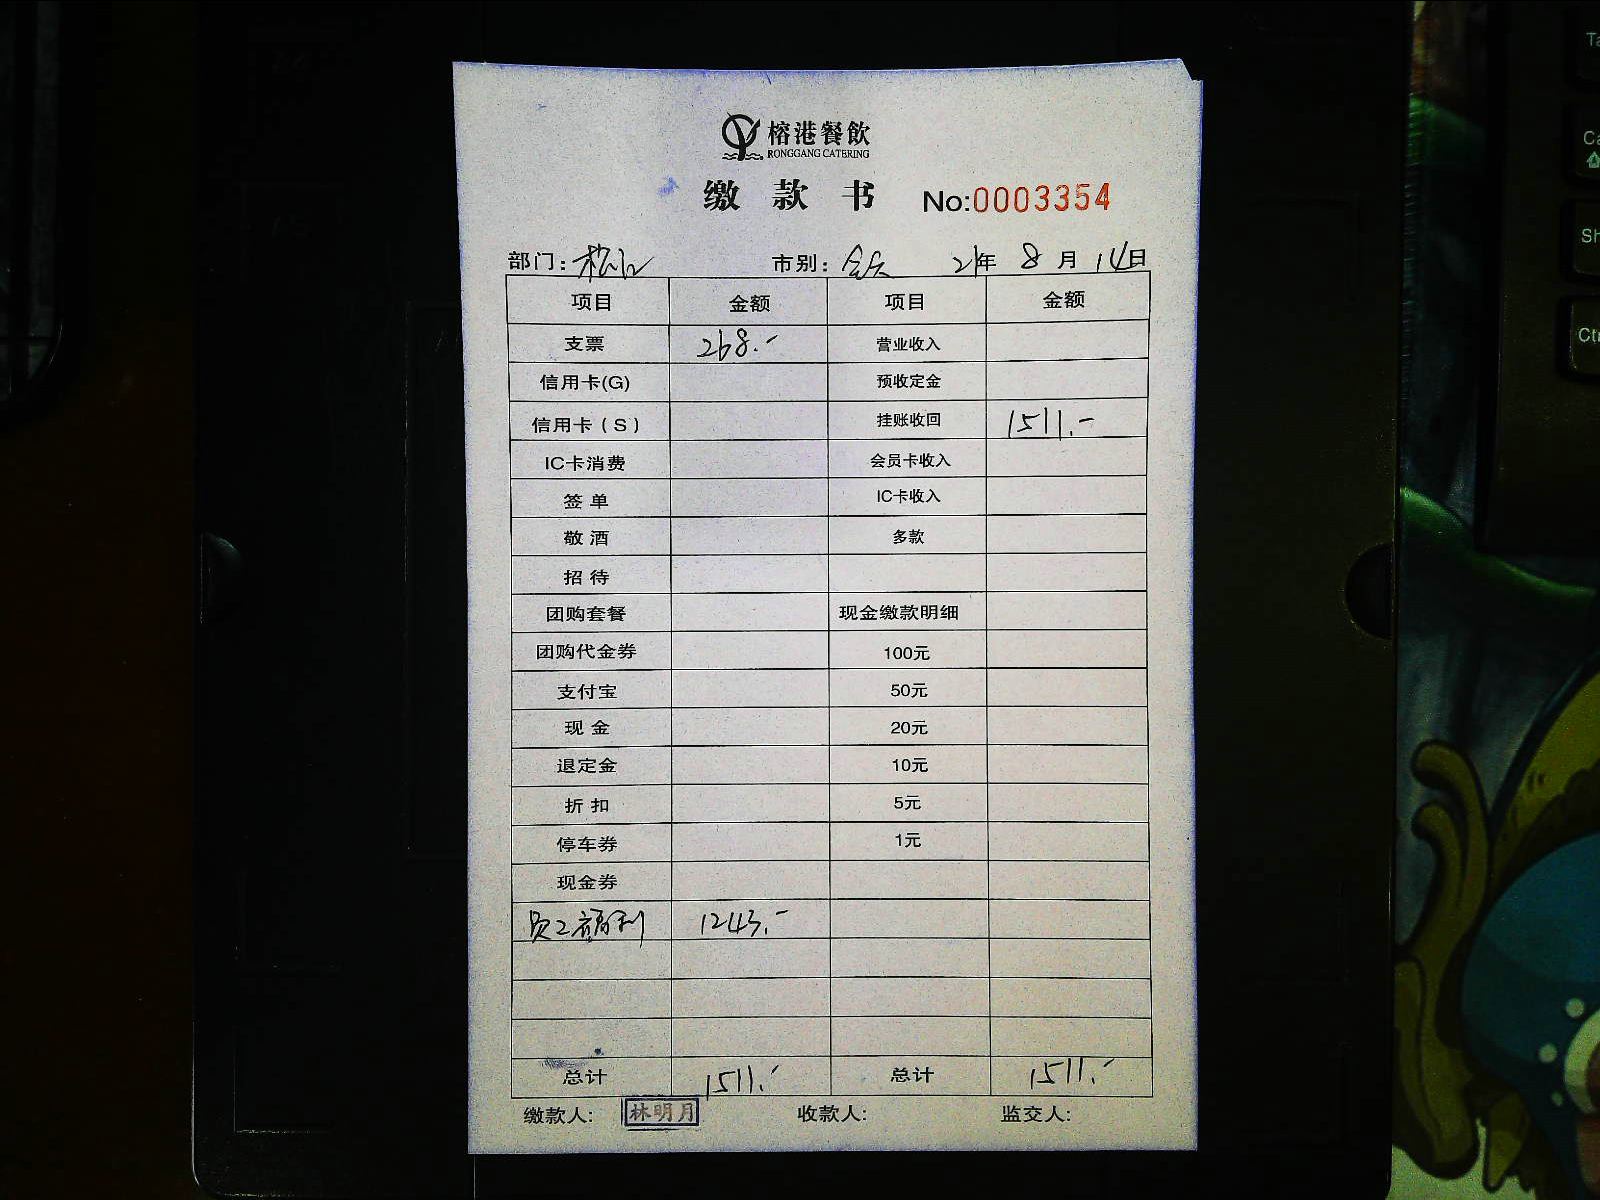 榕港餐飲
RONGGANG CATERING
缴款书 No:0003354
部门: 松江 市别: 全天 21年 8月 14日
项目 金额 项目 金额
支票 268.- 营业收入
信用卡(G) 预收定金
信用卡(S) 挂账收回 1511.-
IC卡消费 会员卡收入
签单 IC卡收入
敬酒 多款
招待
团购套餐 现金缴款明细
团购代金券 100元
支付宝 50元
现金 20元
退定金 10元
折扣 5元
停车券 1元
现金券
员工福利 1243.-
总计 1511.- 总计 1511.-
缴款人: 林明月 收款人: 监交人:
Ta
Ca
Sh
Ctr